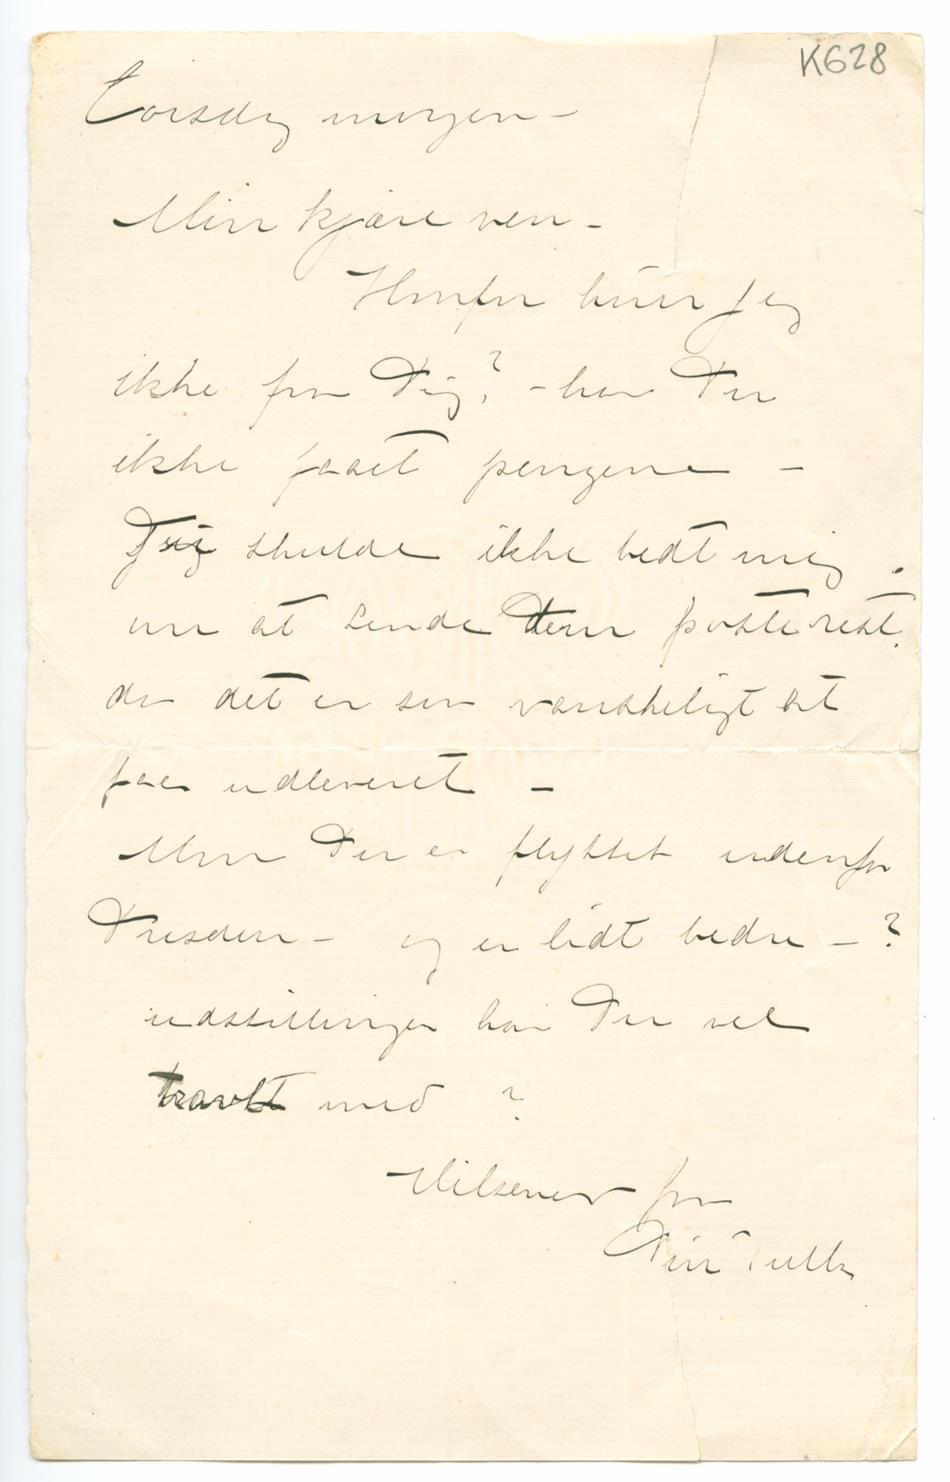 K628
Torsdag morgen –
Min kjære ven –
Hvorfor hører jeg
ikke fra Dig? – har Du
ikke faaet pengene –
skulde ikke bedt mig
om at sende dem poste rest.
da det er saa vanskeligt at
faa udleveret –
Men Du er flyttet udenfor
Dresden – og er lidt bedre – ?
udstillingen har Du vel
travlt med ?
Hilsener fra
Din Tulla